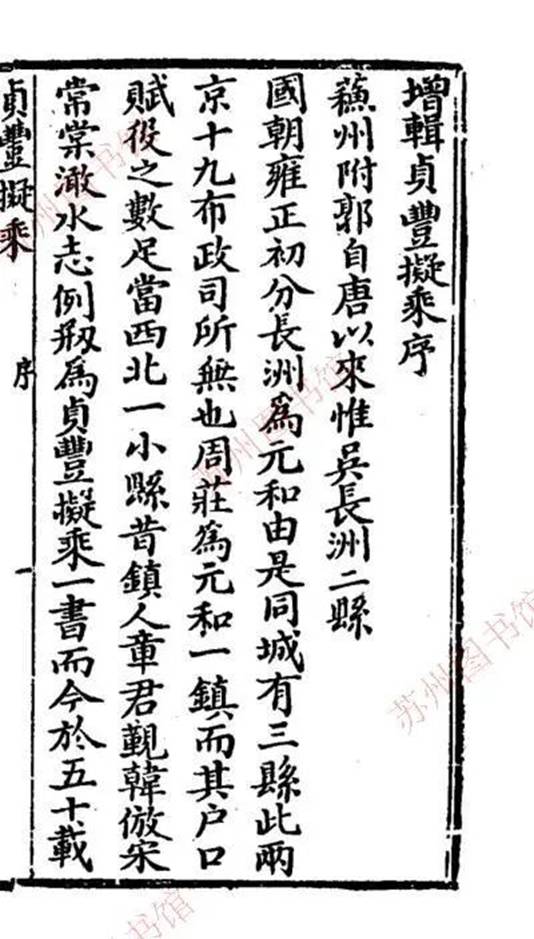 增輯貞豐擬乘序
蘓州附郭自唐以來惟吳長洲二縣
國朝雍正初分長洲爲元和由是同城有三縣此兩
京十九布政司所無也周莊爲元和一鎮而其户口
賦役之數足當西北一小縣昔鎮人章君觐韓倣宋
常棠澉水志例剏爲貞豐擬乘一書而今於五十載
貞豐擬乘
序
一
苏州图书馆
苏州图书馆
苏州图书馆
书馆